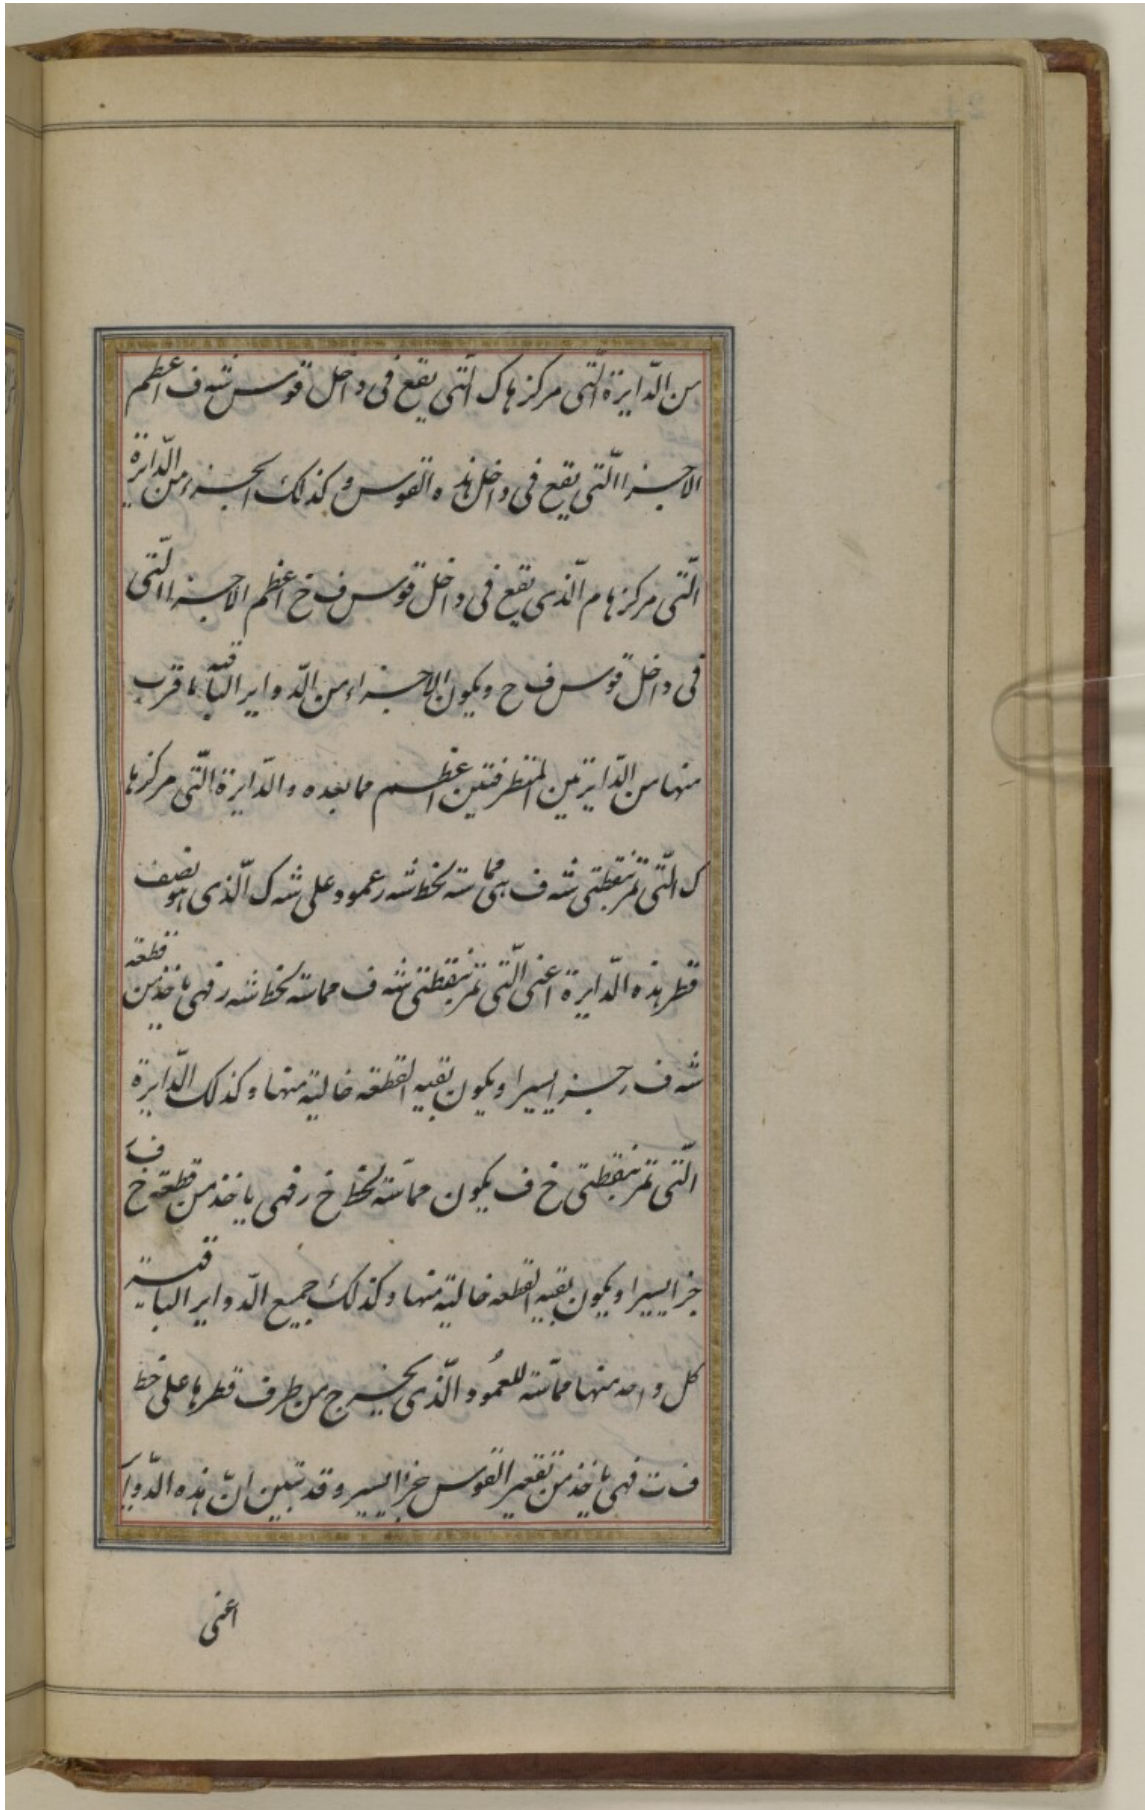 من الدّايرة الّتى مركزها ك الّتى يقع فى داخل قوس شه ف اعظم
الاجزا الّتى يقع فى داخل هذه القوس وكذلك الجزء من الدّايرة
الّتى مركزها م الّذى يقع فى داخل قوس ف خ اعظم الاجزا الّتى
فى داخل قوس ف خ ويكون الاجزاء من الدّواير الباقية ما قرب
منها من الدّايرتين المتطرفتين اعظم مما بعده والدّايرة الّتى مركزها
ك الّتى تمر بنقطتى شه ف هى مماسة لخط شه ر عمود على شه ك الّذى هو نصف
قطر هذه الدّايرة اعنى الّتى تمر بنقطتى شه ف مماسة لخط شه ر فهى ياخذ من قطعة
شه ف ر جزا يسيرا ويكون بقيه القطعه خالية منها وكذلك الدّايرة
الّتى تمر بنقطتى خ ف يكون مماسّة لخط خ ر فهى ياخذ من قطعة خ ف ر
جزا يسيرا ويكون بقيه القطعه خالية منها وكذلك جميع الدّواير الباقية
كل واحد منها مماسّة للعمُود الّذى يخرج من طرف قطرها على خط
ف ت فهى ياخذ من تقعير القوس جزا يسير وقد تبين انّ هذه الدّواير
اعنى